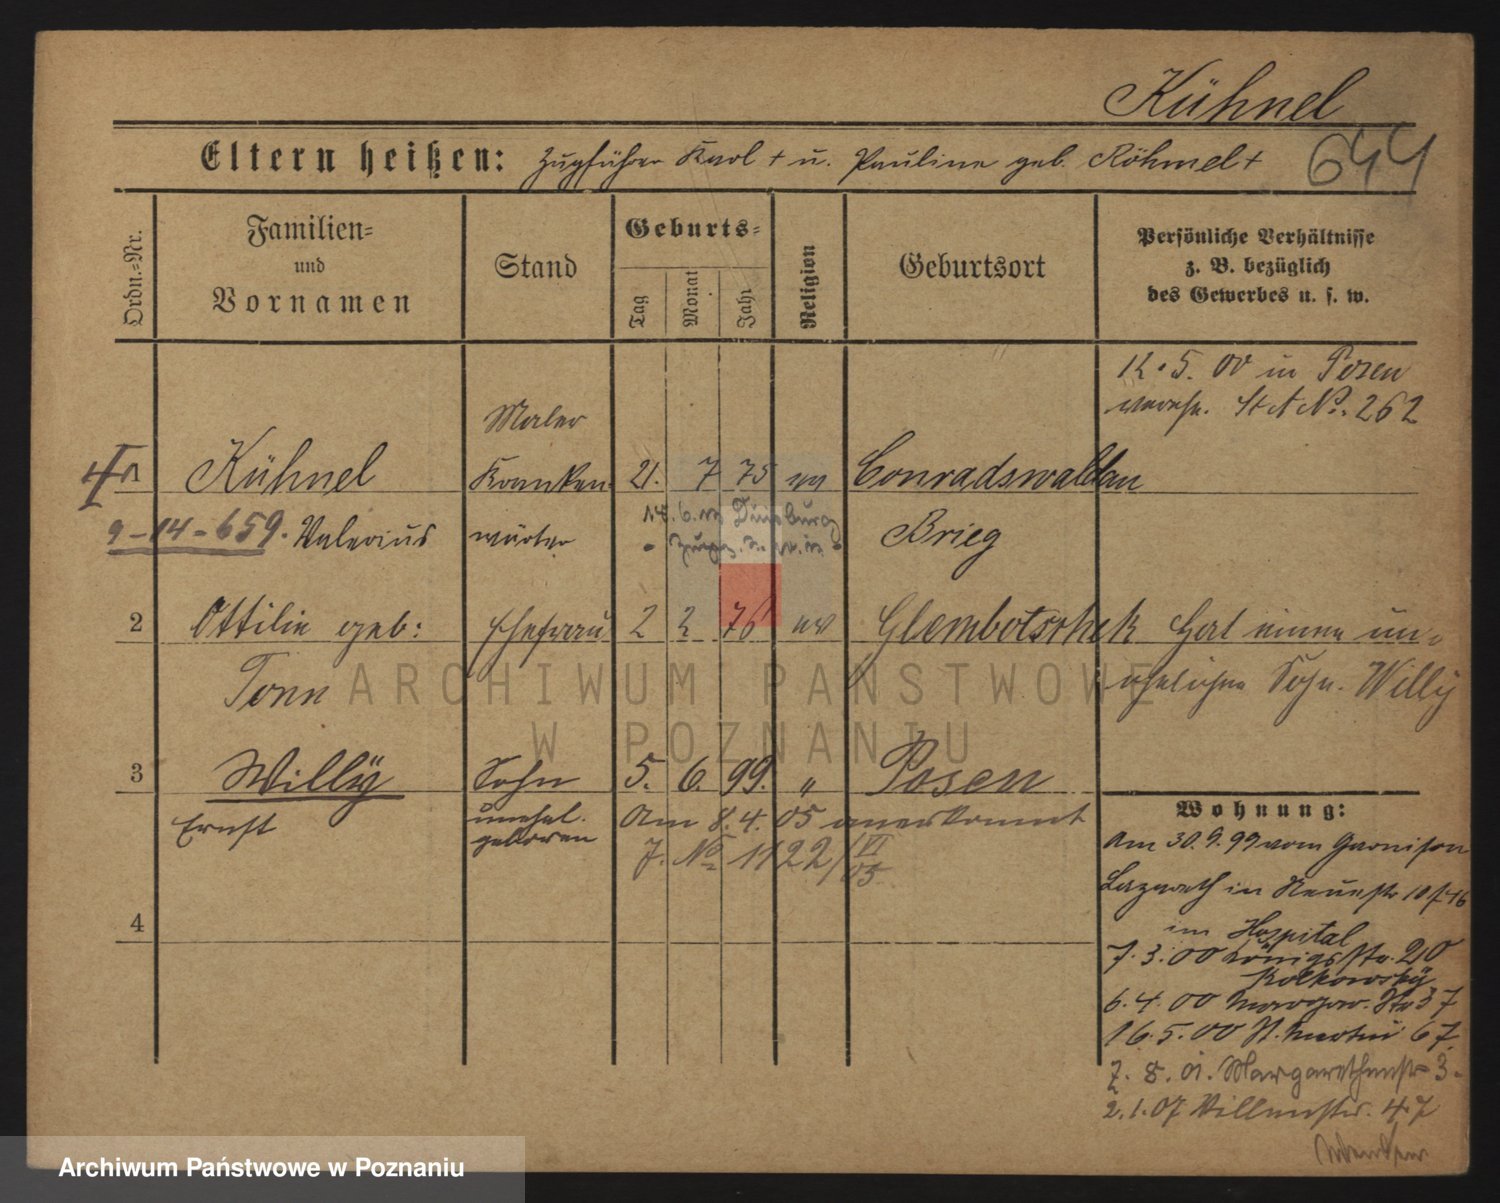 Kühnel
Eltern heißen: Zugführer Karl + u. Pauline geb. Röhmel +
644
Ordn.-Nr.
Familien-
und
Vornamen
Stand
Geburts-
Tag
Monat
Jahr
Religion
Geburtsort
Persönliche Verhältnisse
z. B. bezüglich
des Gewerbes u. s. w.
12.5.00 in Posen
vereh. StA No. 262
Maler
1 Kühnel Kranken 21. 7 75 ev Conradswaldau
9-14-659. Valerius wärter Brieg
Duisburg
2 Ottilie geb: Ehefrau 2 2 76 ev Glembotschek hat einen un-
Tonn ehelichen Sohn. Willy
ARCHIWUM PAŃSTWOWE
W POZNANIU
3 Willy Sohn 5. 6. 99. " Posen
Ernst unehel. Am 8.4.05 anerkannt
geboren J. No 1122/VI 05
4
Wohnung:
Am 30.9.99 vom Garnison
Lazareth in Neuestr 10
im Hospital
7.3.00 Königsstr. 20
6.4.00 37
16.5.00 St. Martin 67.
7.8.01. Margarethenstr 3.
2.1.07 47
Wenden
Archiwum Państwowe w Poznaniu